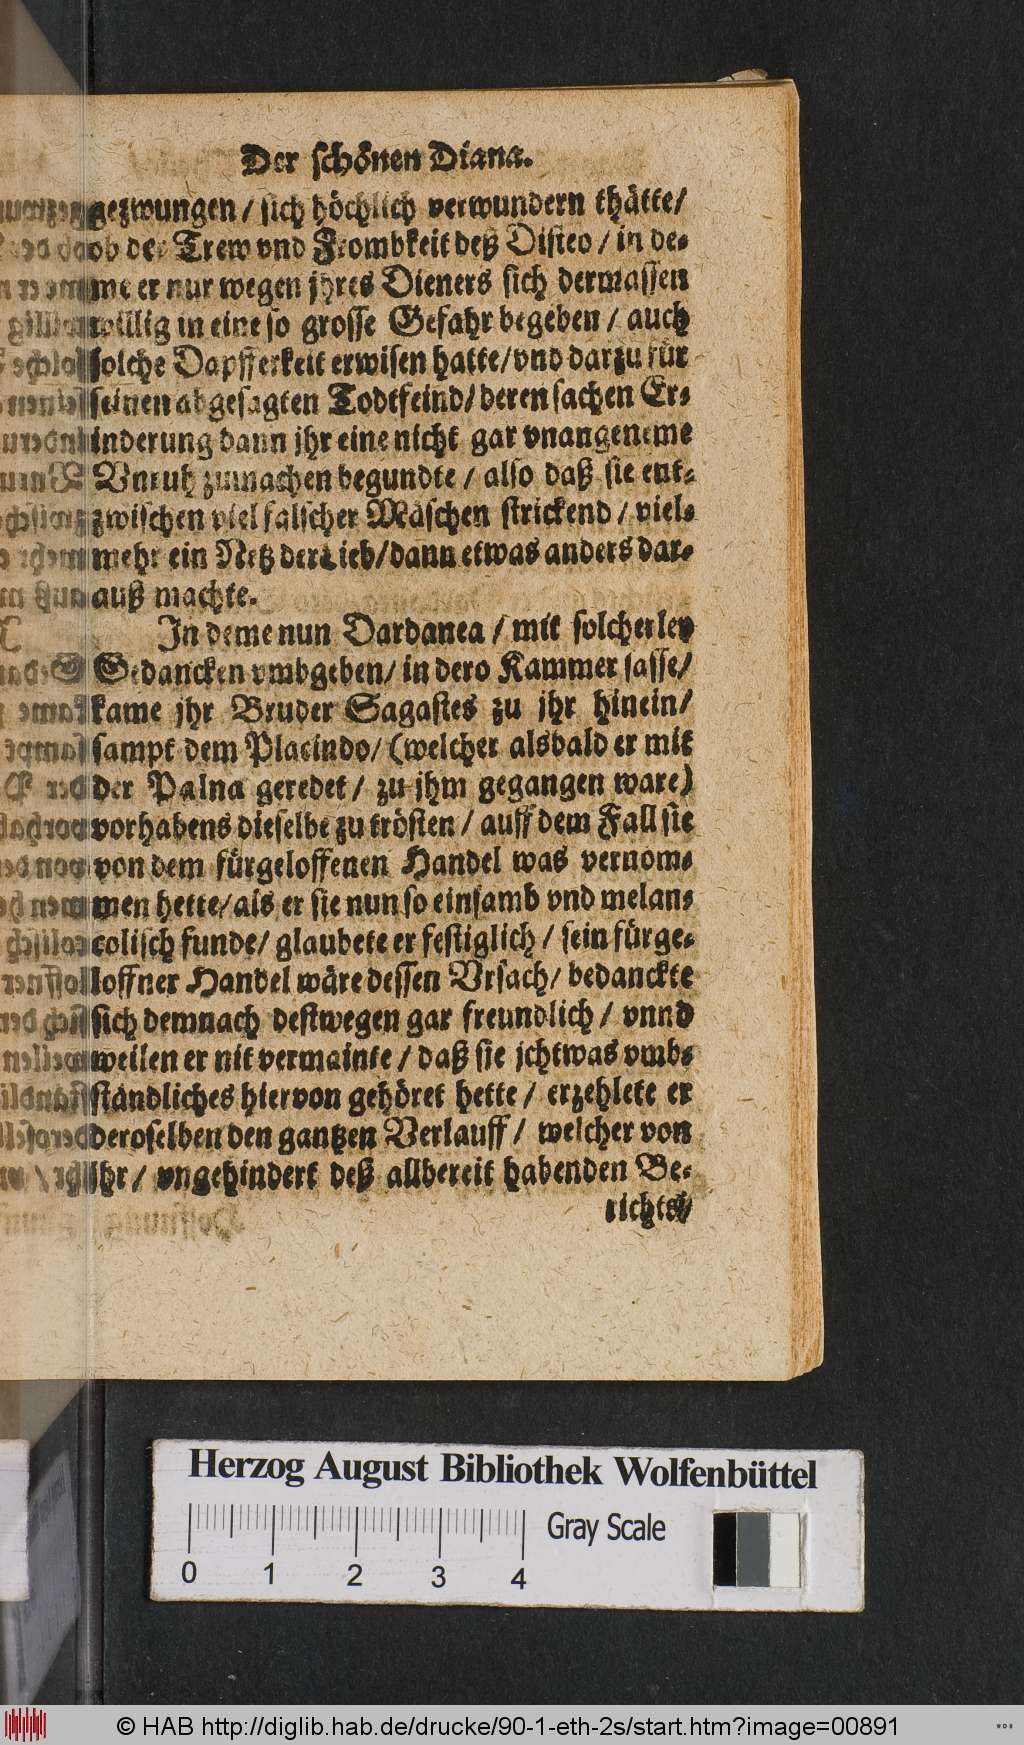 Der schönen Diana.
gezwungen / sich höchlich verwundern thätte /
ob der Trew vnd Frombkeit deß Disteo / in de-
me er nur wegen jhres Dieners sich dermassen
willig in eine so grosse Gefahr begeben / auch
solche Dapfferkeit erwisen hatte / vnd darzu für
seinen abgesagten Todtfeind / deren sachen Er-
inderung dann jhr eine nicht gar vnangeneme
Vnruh zumachen begundte / also daß sie ent-
zwischen viel falscher Mäschen strickend / viel-
mehr ein Netz der Lieb / dann etwas anders dar-
auß machte.
In deme nun Dardanea / mit solcherley
Gedancken vmbgeben / in dero Kammer sasse /
kame jhr Bruder Sagastes zu jhr hinein /
sampt dem Placindo / (welcher alsbald er mit
der Palna geredet / zu jhm gegangen ware)
vorhabens dieselbe zu trösten / auff dem Fall sie
von dem fürgeloffenen Handel was vernom-
men hette / als er sie nun so einsamb vnd melan-
colisch funde / glaubete er festiglich / sein fürge-
loffner Handel wäre dessen Vrsach / bedanckte
sich demnach destwegen gar freundlich / vnnd
weilen er nit vermainte / daß sie jchtwas vmb-
ständliches hiervon gehöret hette / erzehlete er
deroselben den gantzen Verlauff / welcher von
jhr / vngehindert deß allbereit habenden Be-
richts /
Herzog August Bibliothek Wolfenbüttel
0 1 2 3 4 Gray Scale
© HAB http://diglib.hab.de/drucke/90-1-eth-2s/start.htm?image=00891